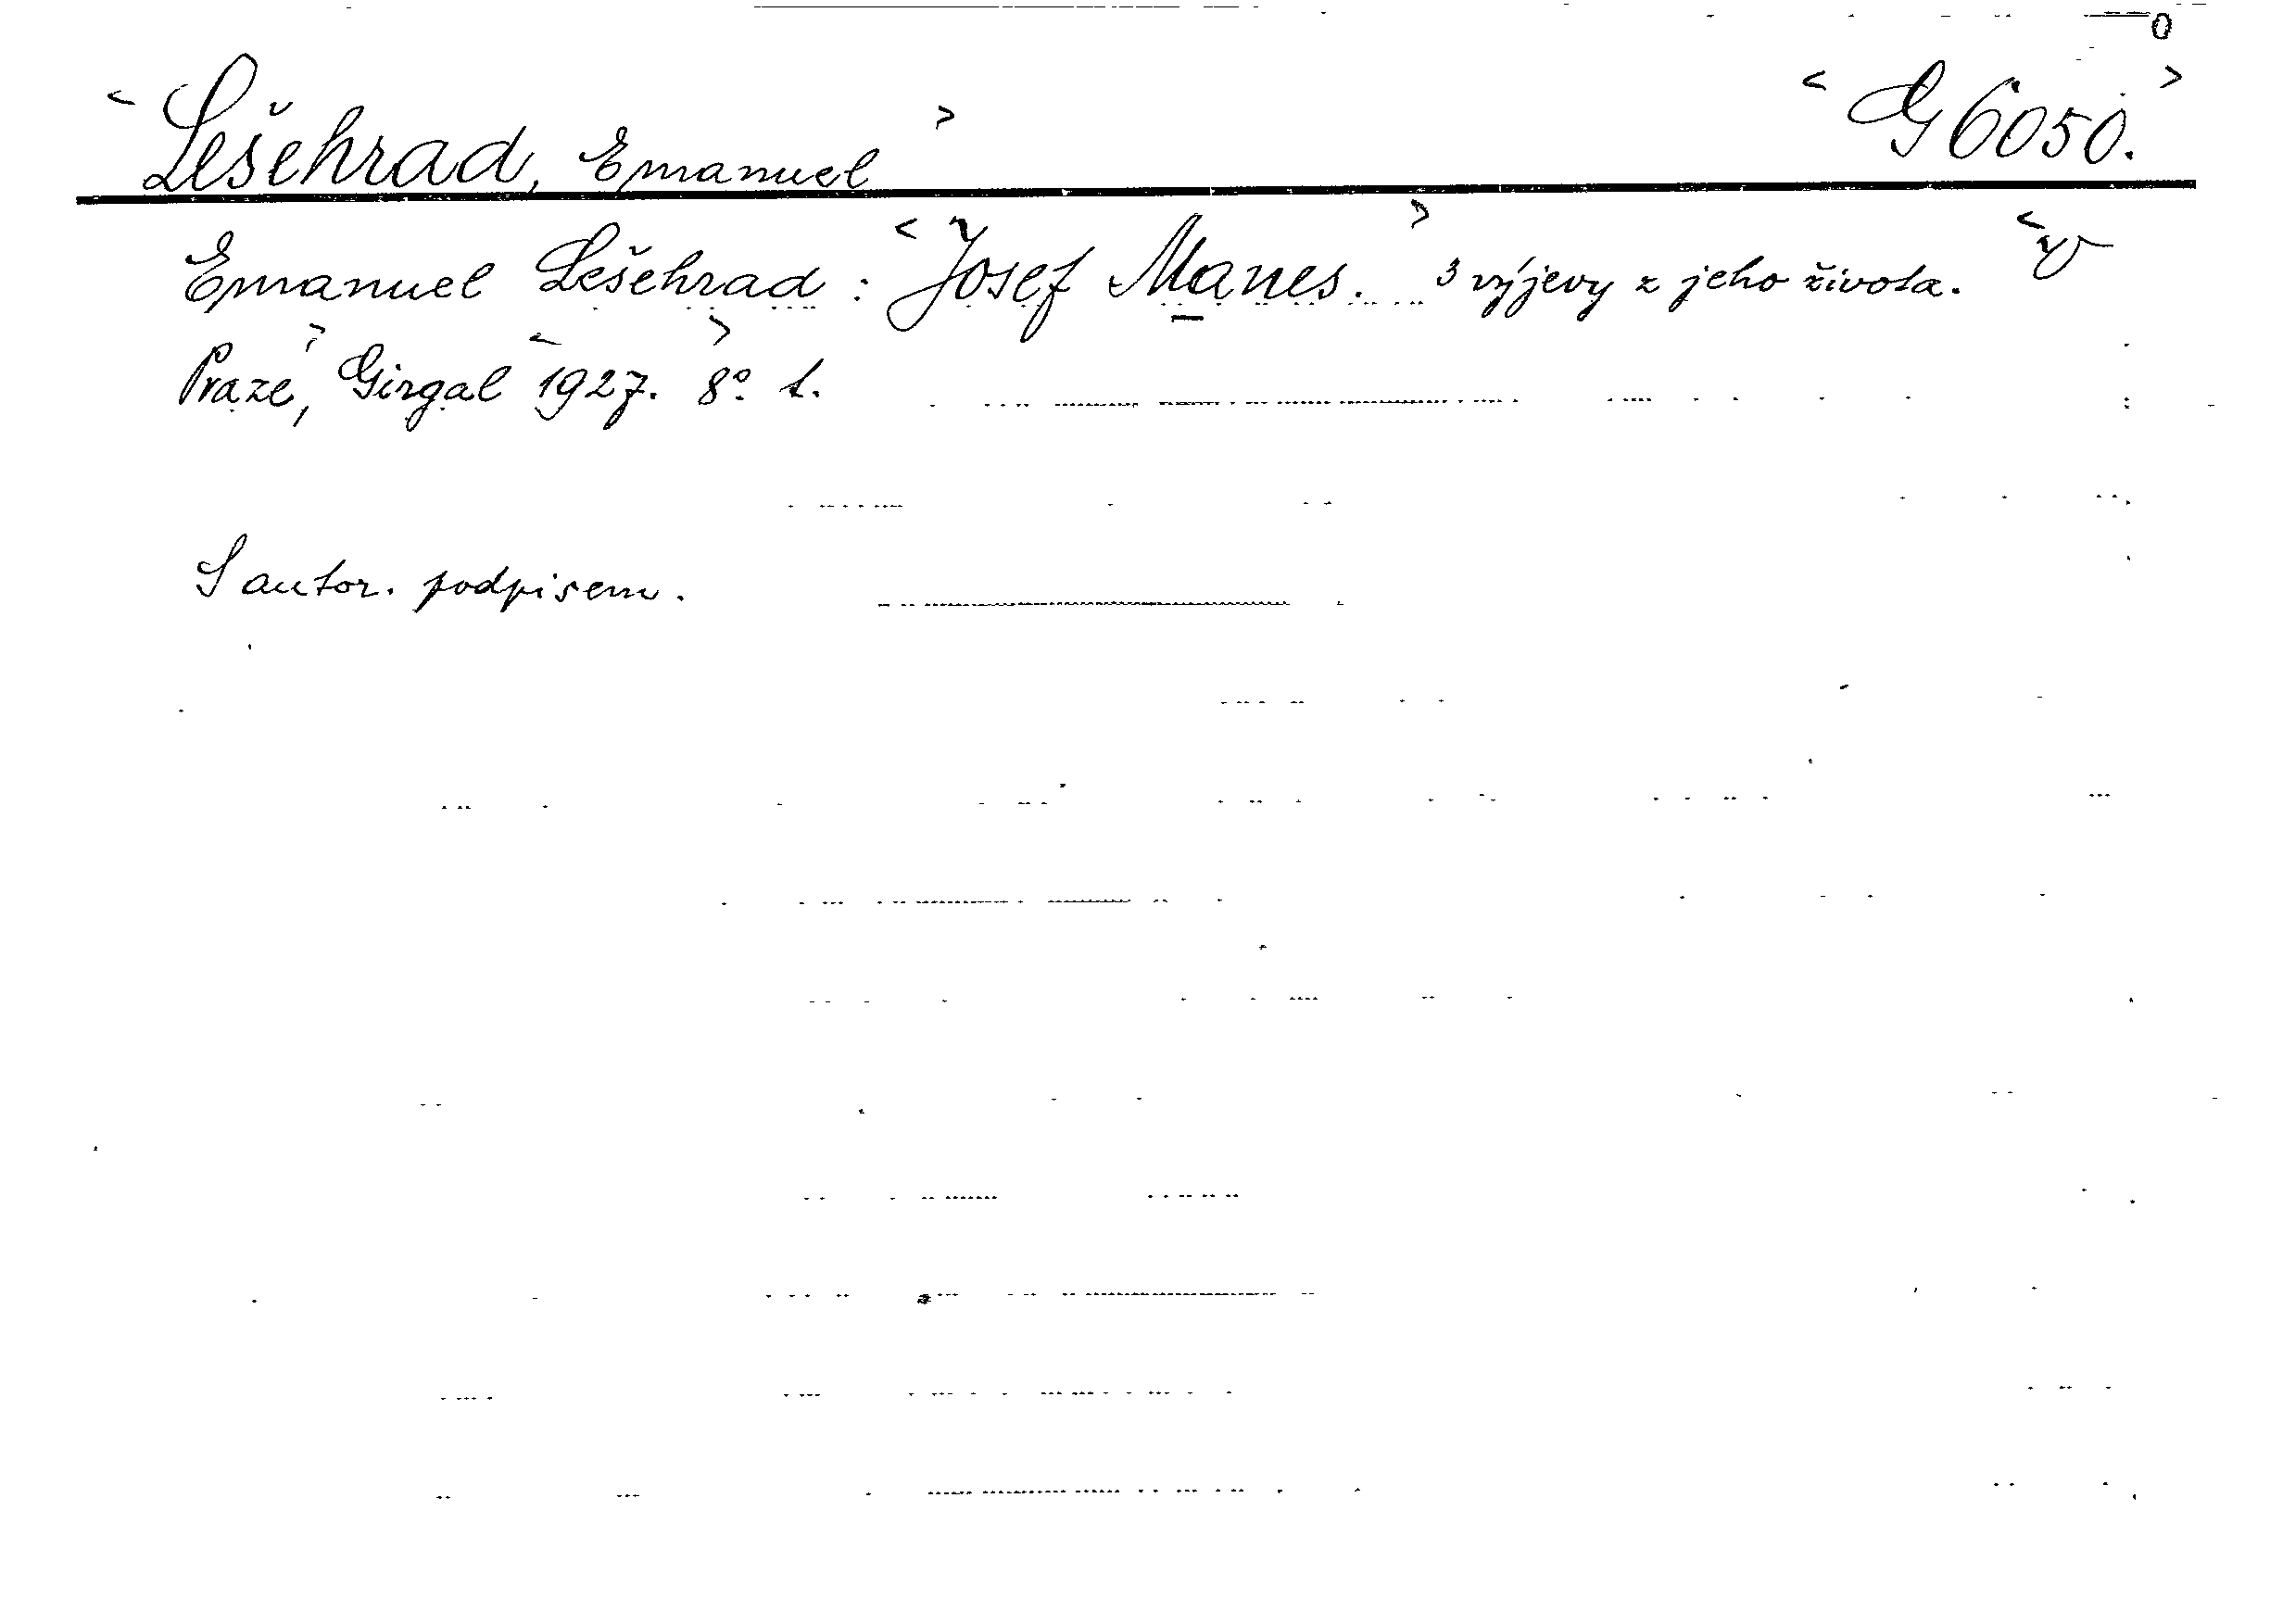 < Lešehrad, Emanuel > < G 6050. >
Emanuel Lešehrad : < Josef Manes. > 3 výjevy z jeho života. < V
Praze, > Girgal < 1927. > 8° t.
S autor. podpisem.